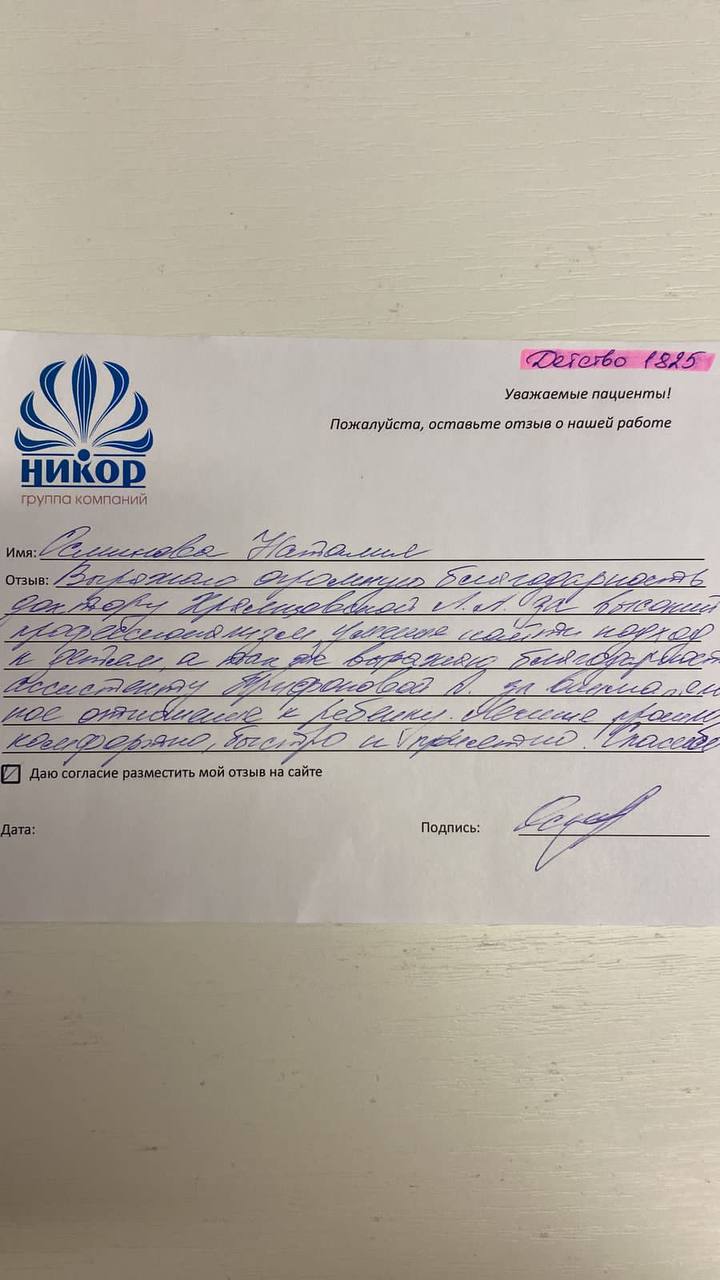 Детство 1825
Уважаемые пациенты!
Пожалуйста, оставьте отзыв о нашей работе
НИКОР
группа компаний
Имя: Осминова Наталия
Отзыв: Выражаю огромную благодарность
доктору Л.А. за высокий
профессионализм, умение найти подход
к детям, а так же выражаю благодарность
ассистенту Трифоновой А. за вниматель
ное отношение к ребенку. Лечение прошло
комфортно, быстро и приятно. Спасибо
Даю согласие разместить мой отзыв на сайте
Дата:
Подпись: